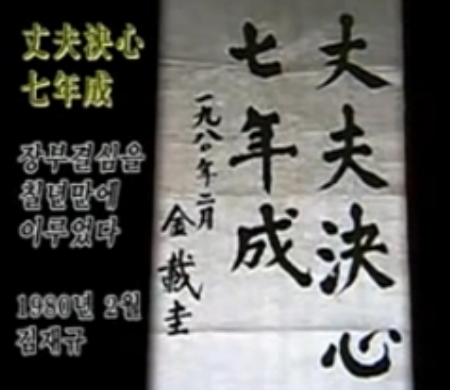 丈夫決心
七年成
장부결심을
칠년만에
이루었다
1980년 2월
김재규
丈夫決心
七年成
一九八〇年二月
金載圭